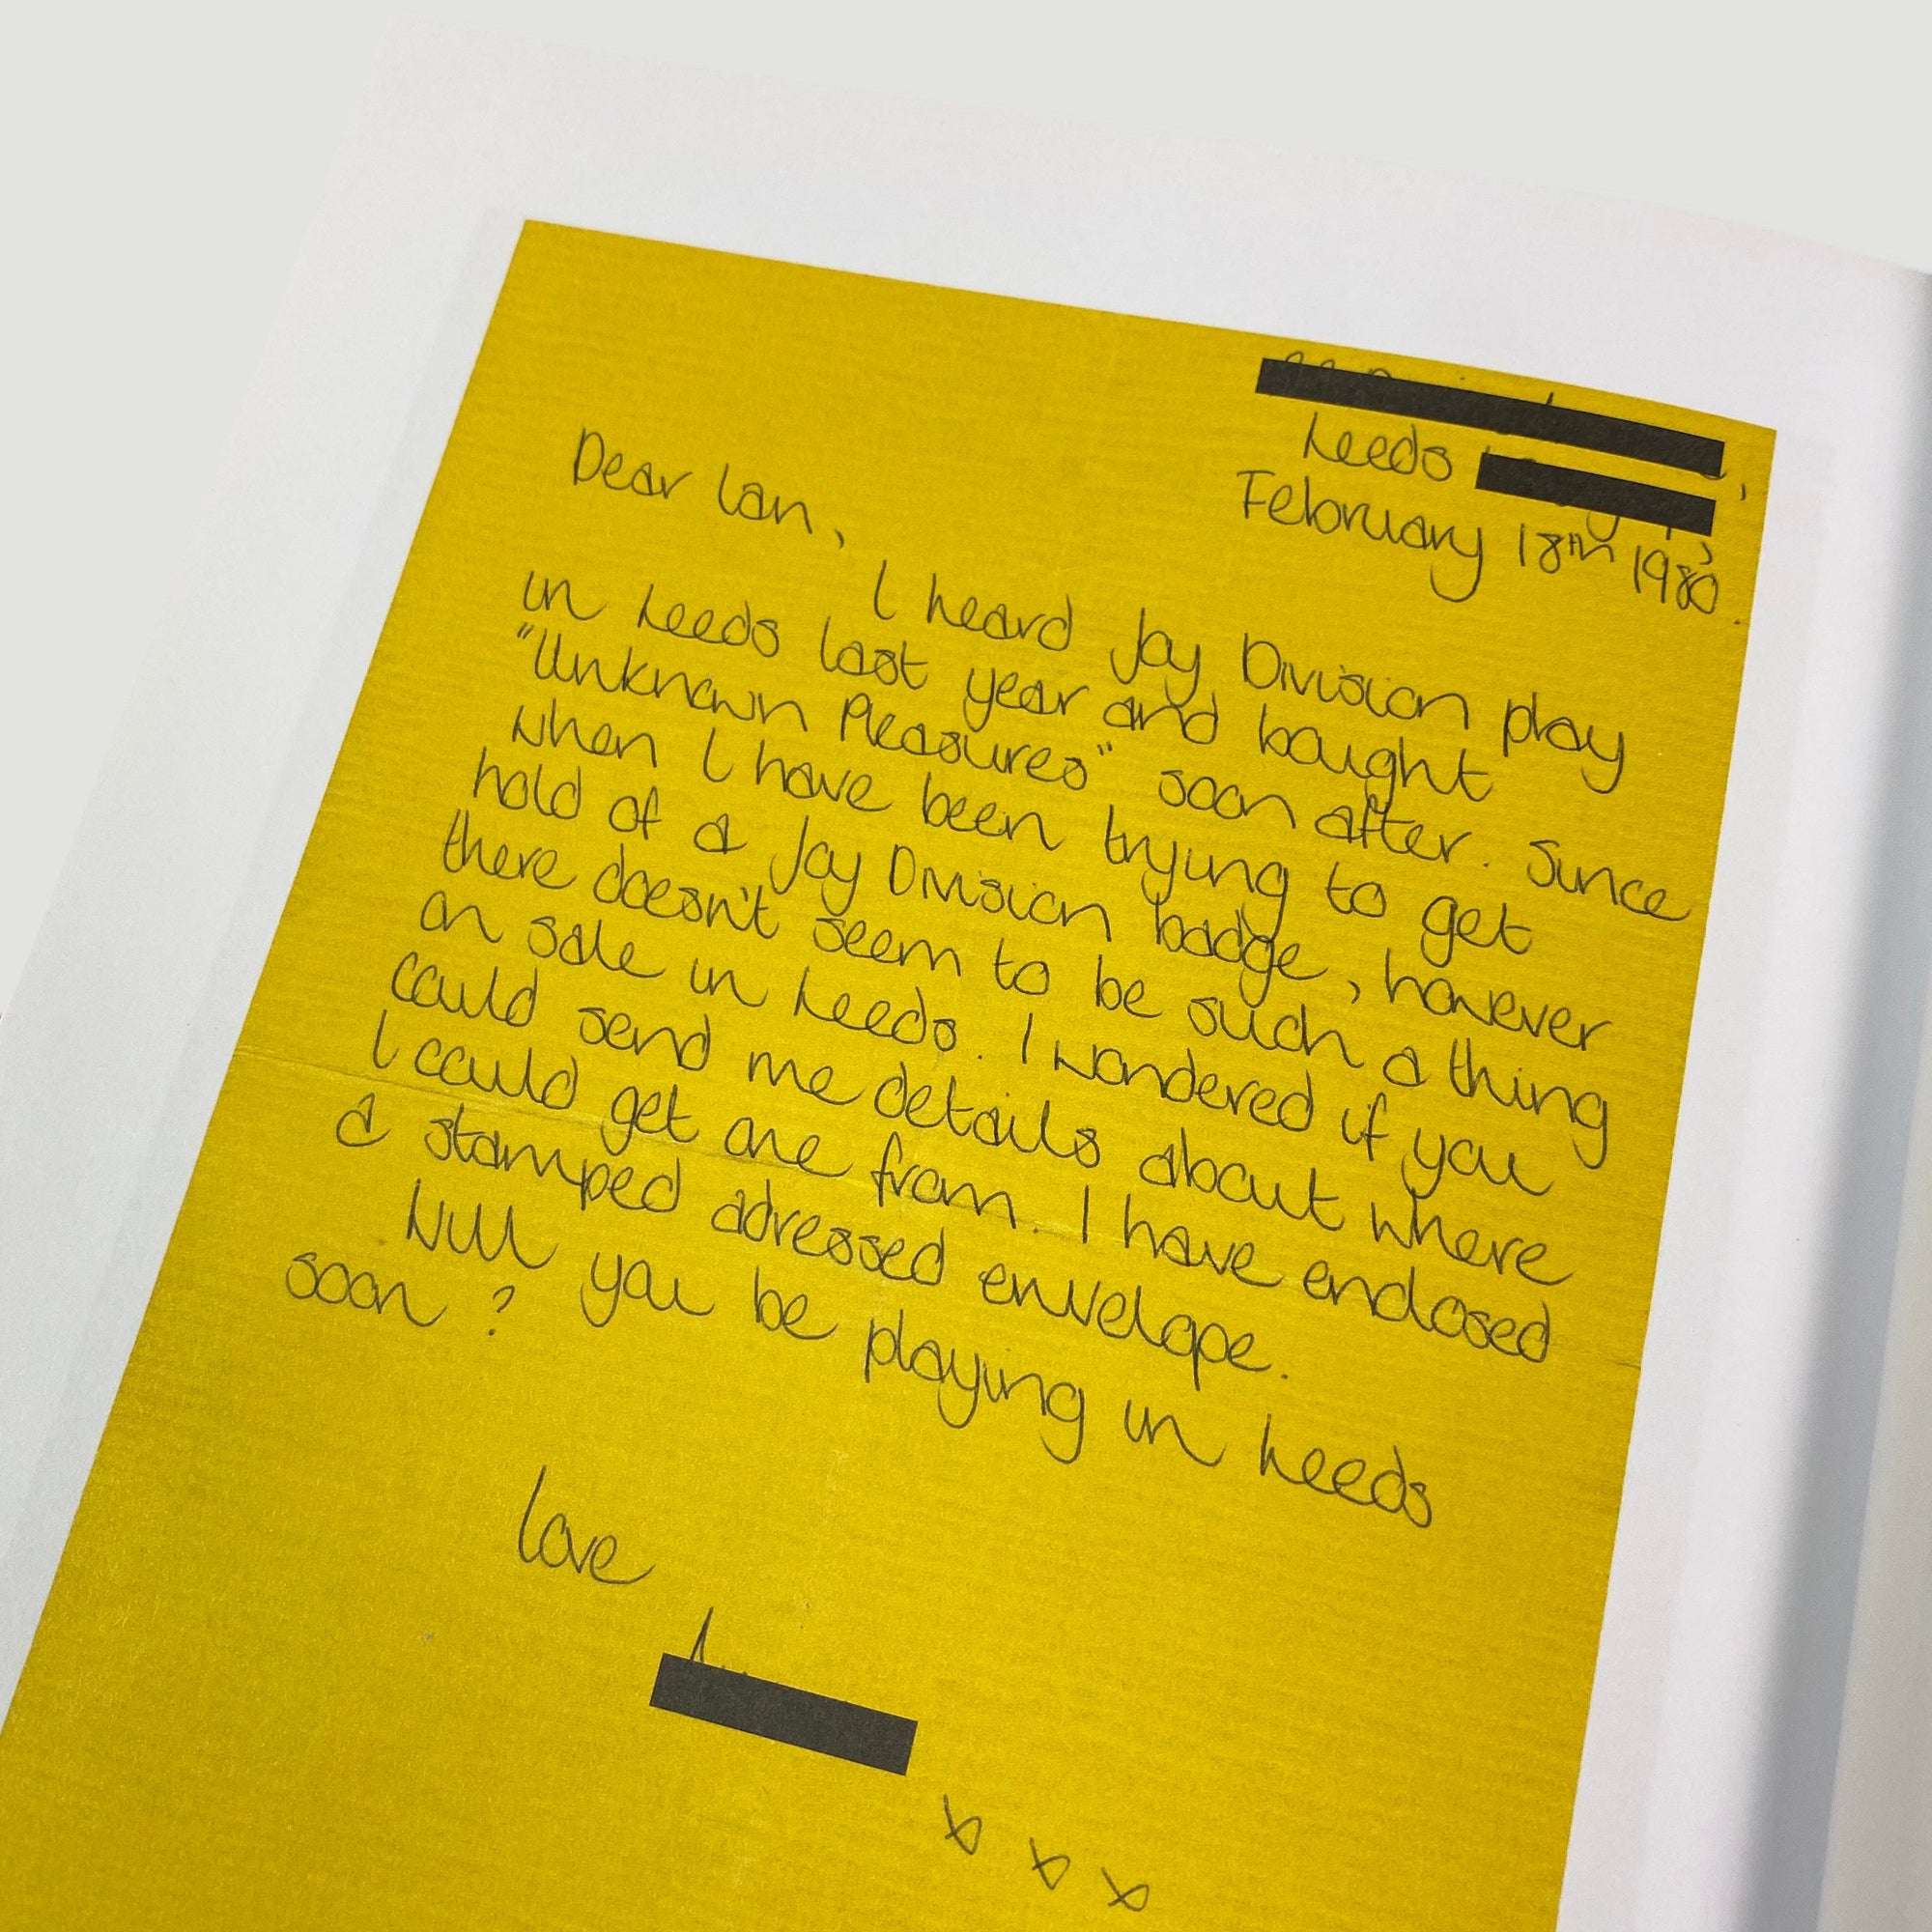 Leeds
February 18th 1980.
Dear Ian,
I heard Joy Division play
in Leeds last year and bought
"Unknown Pleasures" soon after. Since
when I have been trying to get
hold of a Joy Division badge, however
there doesn't seem to be such a thing
on sale in Leeds. I wondered if you
could send me details about where
I could get one from. I have enclosed
a stamped adressed envelope.
Will you be playing in Leeds
soon ?
love
x x x